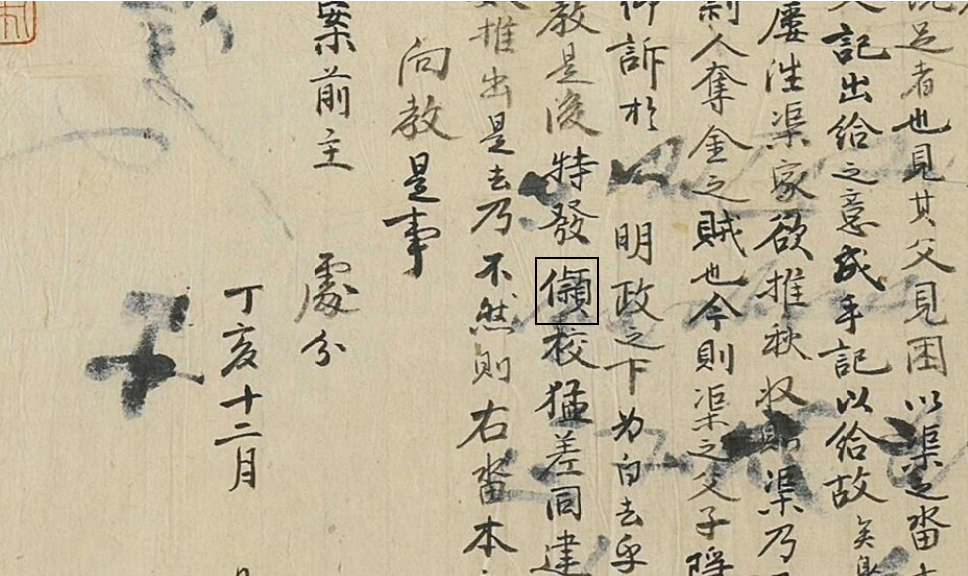 況足者也見其父見困以渠之畓
記出給之意成手記以給故
屢徃渠家欲推秋收則渠乃
制人奪金之賊也今則渠之父子
仰訴於
明政之下爲白去乎
教是後特發校猛差同建
推出是去乃不然則右畓本
向教是事
案前主
處分
丁亥十二月